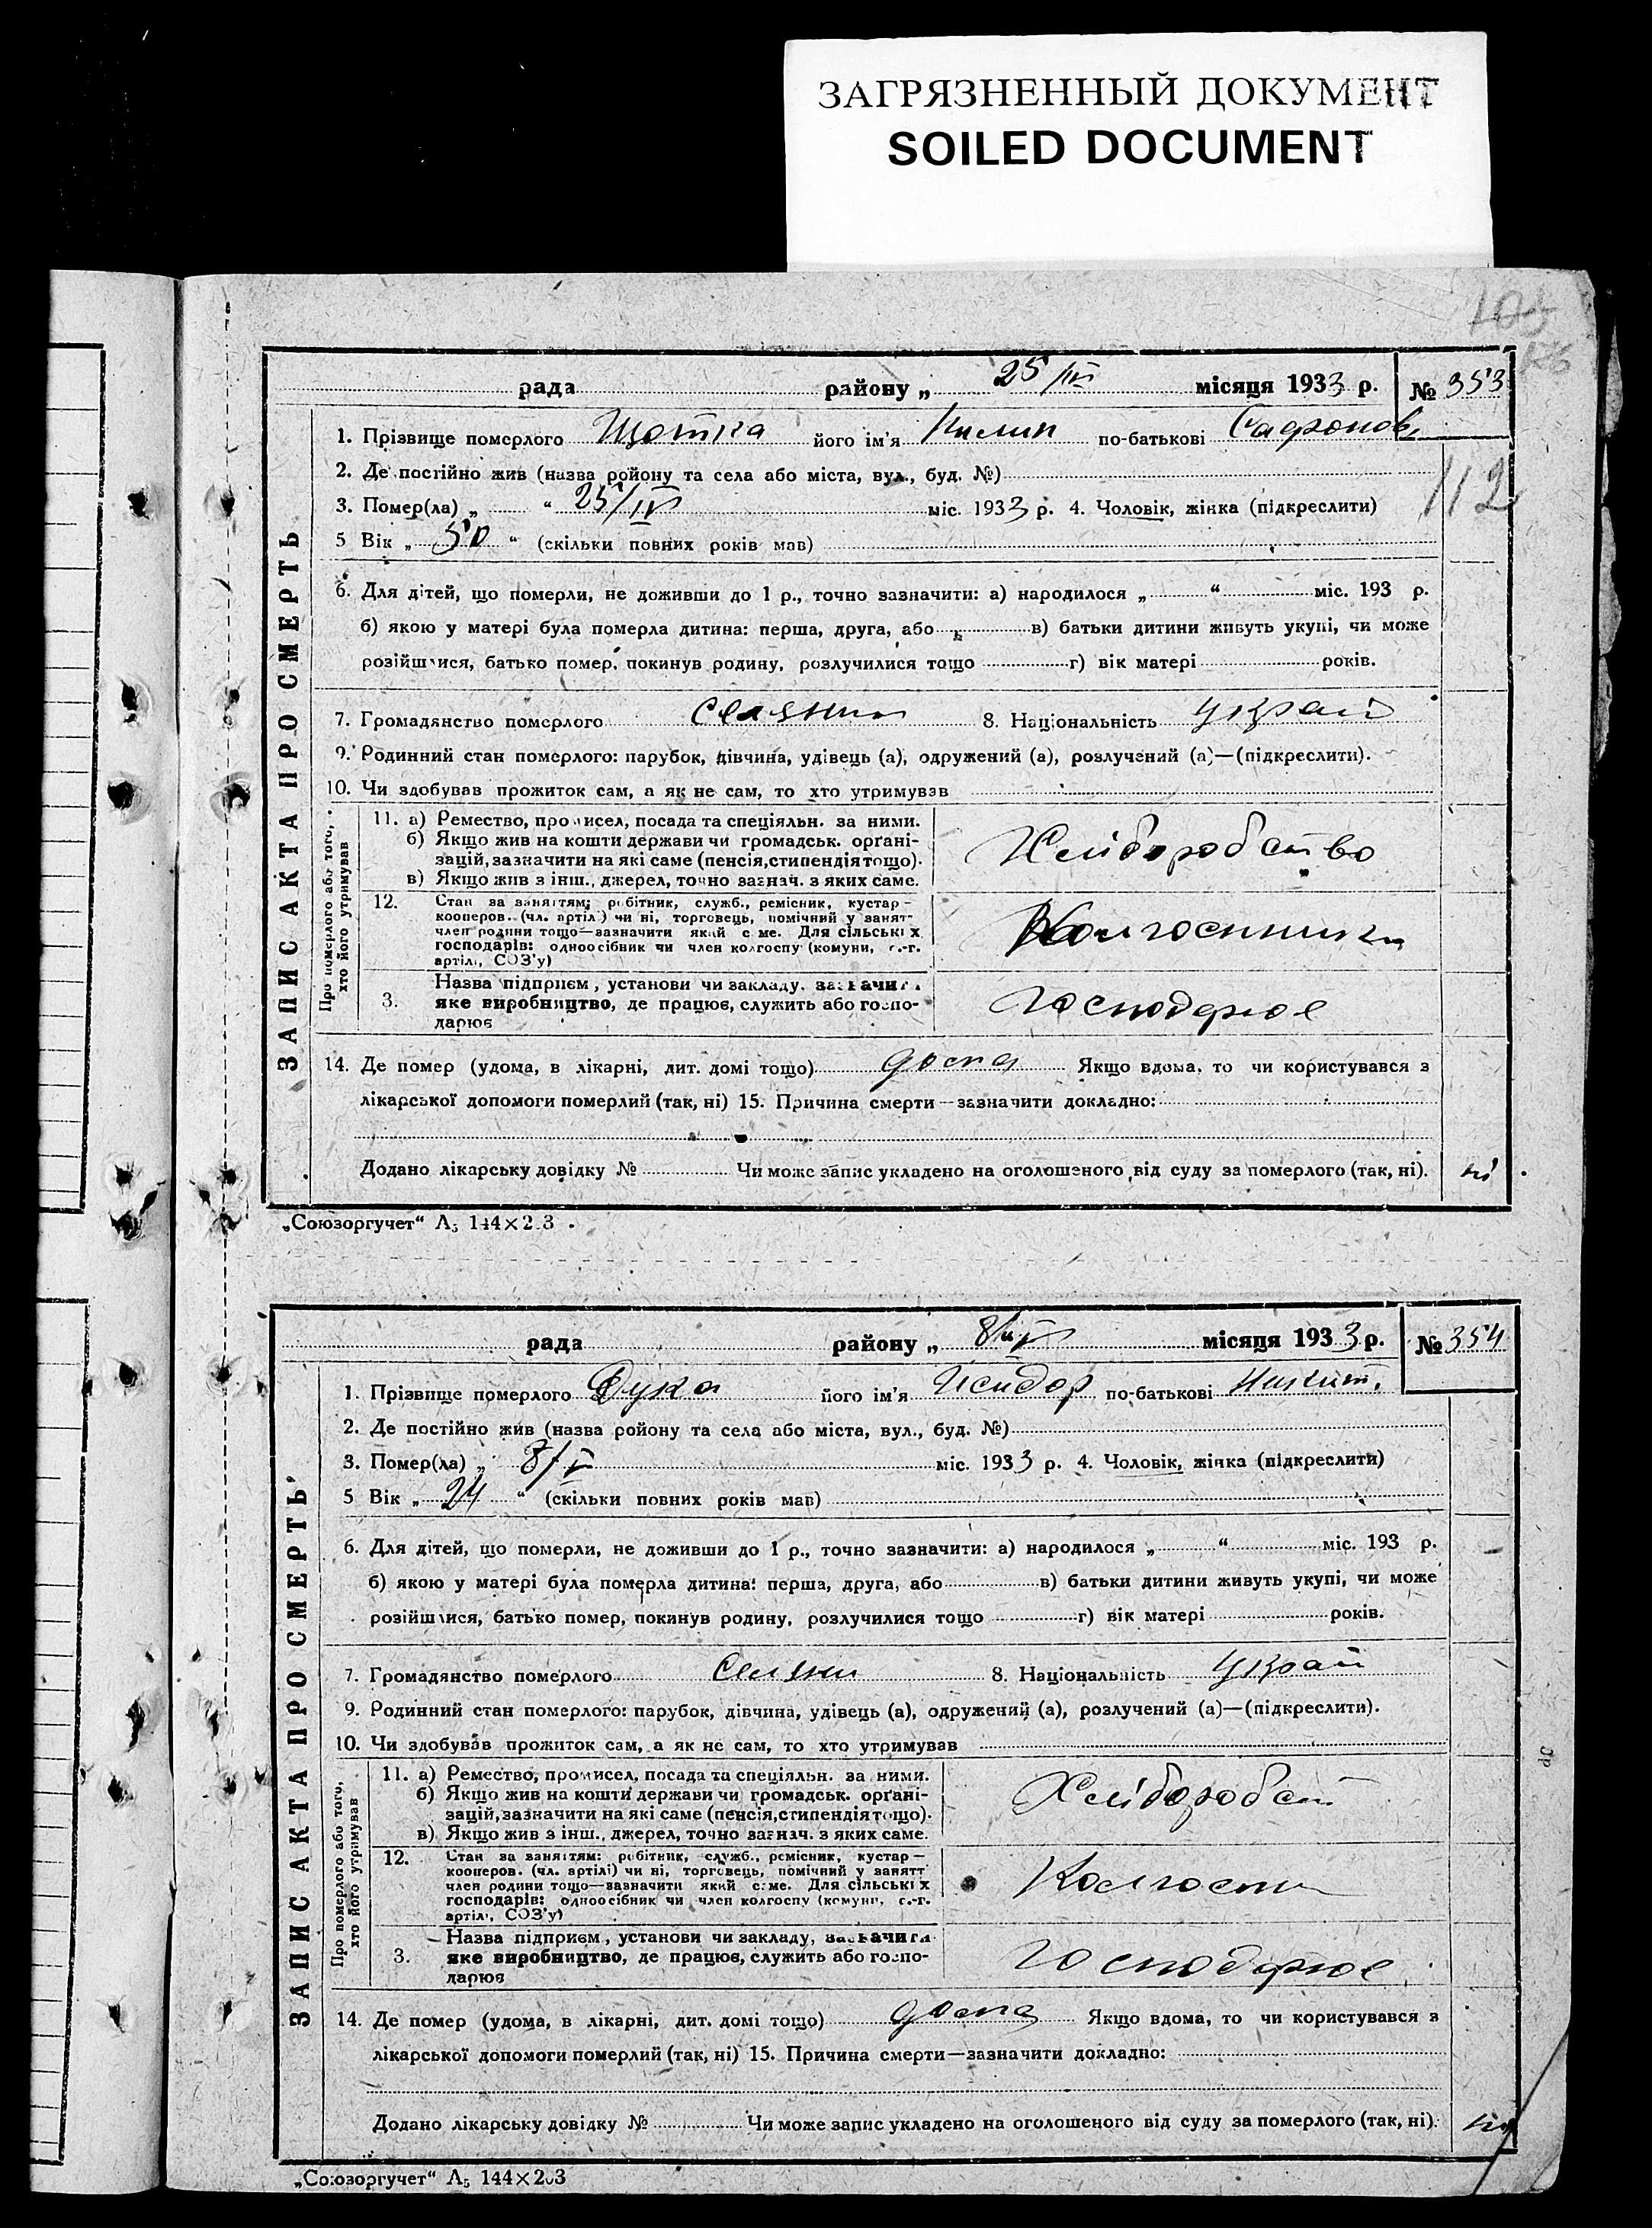 ЗАГРЯЗНЕННЫЙ ДОКУМЕНТ
SOILED DOCUMENT
ЗАПИС АКТА ПРО СМЕРТЬ
рада району „ 25/IV місяця 1933 р. № 353
1. Прізвище померлого Щотка його ім'я по-батькові Сафронов
2. Де постійно жив (назва ройону та села або міста, вул., буд. №)
3. Помер(ла) „ “ 25/IV міс. 1933 р. 4. Чоловік, жінка (підкреслити)
112
5 Вік „ 50 “ (скільки повних років мав)
6. Для дітей, що померли, не доживши до 1 р., точно зазначити: а) народилося „ “ міс. 193 р.
б) якою у матері була померла дитина: перша, друга, або в) батьки дитини живуть укупі, чи може
розійшлися, батько помер, покинув родину, розлучилися тощо г) вік матері років.
7. Громадянство померлого селянин 8. Національність Украй
9. Родинний стан померлого: парубок, дівчина, удівець (а), одружений (а), розлучений (а)—(підкреслити).
10. Чи здобував прожиток сам, а як не сам, то хто утримував
Про померлого або того, хто його утримував
11. а) Ремество, промисел, посада та спеціяльн. за ними.
б) Якщо жив на кошти держави чи громадськ. орґані-
зацій, зазначити на які саме (пенсія, стипендія тощо).
в) Якщо жив з інш., джерел, точно зазнач. з яких саме.
Хліборобство
12. Стан за заняттям: робітник, служб., ремісник, кустар—
кооперов. (чл. артілі) чи ні, торговець, помічний у занятт
член родини тощо—зазначити який саме. Для сільських
господарів: одноосібник чи член колгоспу (комуни, с.-г.
артілі, СОЗ'у)
3. Назва підприєм, установи чи закладу, зазначити
яке виробництво, де працює, служить або госпо-
дарює
Господарює
14. Де помер (удома, в лікарні, дит. домі тощо) дома Якщо вдома, то чи користувався з
лікарської допомоги померлий (так, ні) 15. Причина смерти—зазначити докладно:
Додано лікарську довідку № Чи може запис укладено на оголошеного від суду за померлого (так, ні). ні
„Союзоргучет“ А5 144×203
ЗАПИС АКТА ПРО СМЕРТЬ
рада району „ 8/V місяця 1933 р. № 354
1. Прізвище померлого Дука його ім'я Исидор по-батькові Никит.
2. Де постійно жив (назва ройону та села або міста, вул., буд. №)
3. Помер(ла) „ 8/V міс. 1933 р. 4. Чоловік, жінка (підкреслити)
5 Вік „ 24 “ (скільки повних років мав)
6. Для дітей, що померли, не доживши до 1 р., точно зазначити: а) народилося „ “ міс. 193 р.
б) якою у матері була померла дитина: перша, друга, або в) батьки дитини живуть укупі, чи може
розійшлися, батько помер, покинув родину, розлучилися тощо г) вік матері років.
7. Громадянство померлого Селянин 8. Національність Украй
9. Родинний стан померлого: парубок, дівчина, удівець (а), одружений (а), розлучений (а)—(підкреслити).
10. Чи здобував прожиток сам, а як не сам, то хто утримував
Про померлого або того, хто його утримував
11. а) Ремество, промисел, посада та спеціяльн. за ними.
б) Якщо жив на кошти держави чи громадськ. орґані-
зацій, зазначити на які саме (пенсія, стипендія тощо).
в) Якщо жив з інш., джерел, точно зазнач. з яких саме.
Хліборобст
12. Стан за заняттям: робітник, служб., ремісник, кустар—
кооперов. (чл. артілі) чи ні, торговець, помічний у занятт
член родини тощо—зазначити який саме. Для сільських
господарів: одноосібник чи член колгоспу (комуни, с.-г.
артілі, СОЗ'у)
Колгоспн
3. Назва підприєм, установи чи закладу, зазначити
яке виробництво, де працює, служить або госпо-
дарює
Господарює
14. Де помер (удома, в лікарні, дит. домі тощо) дома Якщо вдома, то чи користувався з
лікарської допомоги померлий (так, ні) 15. Причина смерти—зазначити докладно:
Додано лікарську довідку № Чи може запис укладено на оголошеного від суду за померлого (так, ні). ні
„Союзоргучет“ А5 144×203